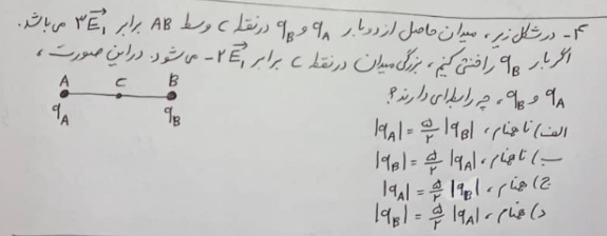 ۴- در شکل زیر، میدان حاصل از دو بار qA و qB در نقطه C وسط AB برابر ۳E⃗₁ می باشد.
اگر بار qB را خنثی کنیم، بزرگی میدان در نقطه C برابر ۲E⃗₁- می شود. در این صورت،
qA و qB، چه رابطه ای دارند؟
A C B
qA qB
الف) ناهنام، |qA| = ۵/۲ |qB|
ب) ناهنام، |qB| = ۵/۲ |qA|
ج) همنام، |qA| = ۵/۲ |qB|
د) همنام، |qB| = ۵/۲ |qA|